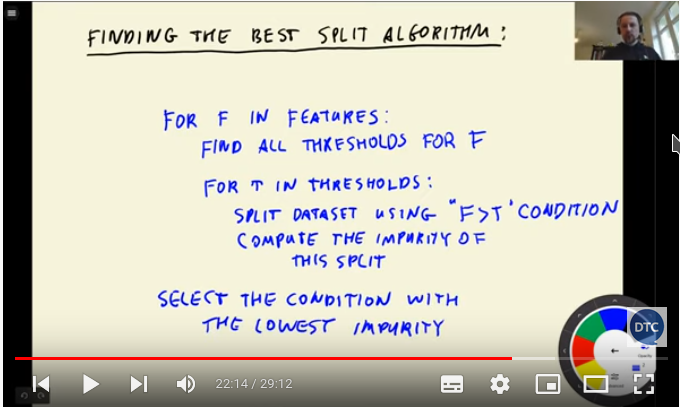 FINDING THE BEST SPLIT ALGORITHM:
FOR F IN FEATURES:
FIND ALL THRESHOLDS FOR F
FOR T IN THRESHOLDS:
SPLIT DATASET USING "F>T" CONDITION
COMPUTE THE IMPURITY OF
THIS SPLIT
SELECT THE CONDITION WITH
THE LOWEST IMPURITY
DTC
22:14 / 29:12